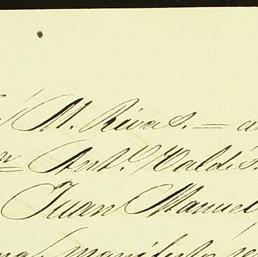 M. Rivas. =
Ant.º Valdés
Juan Manuel
manifestó